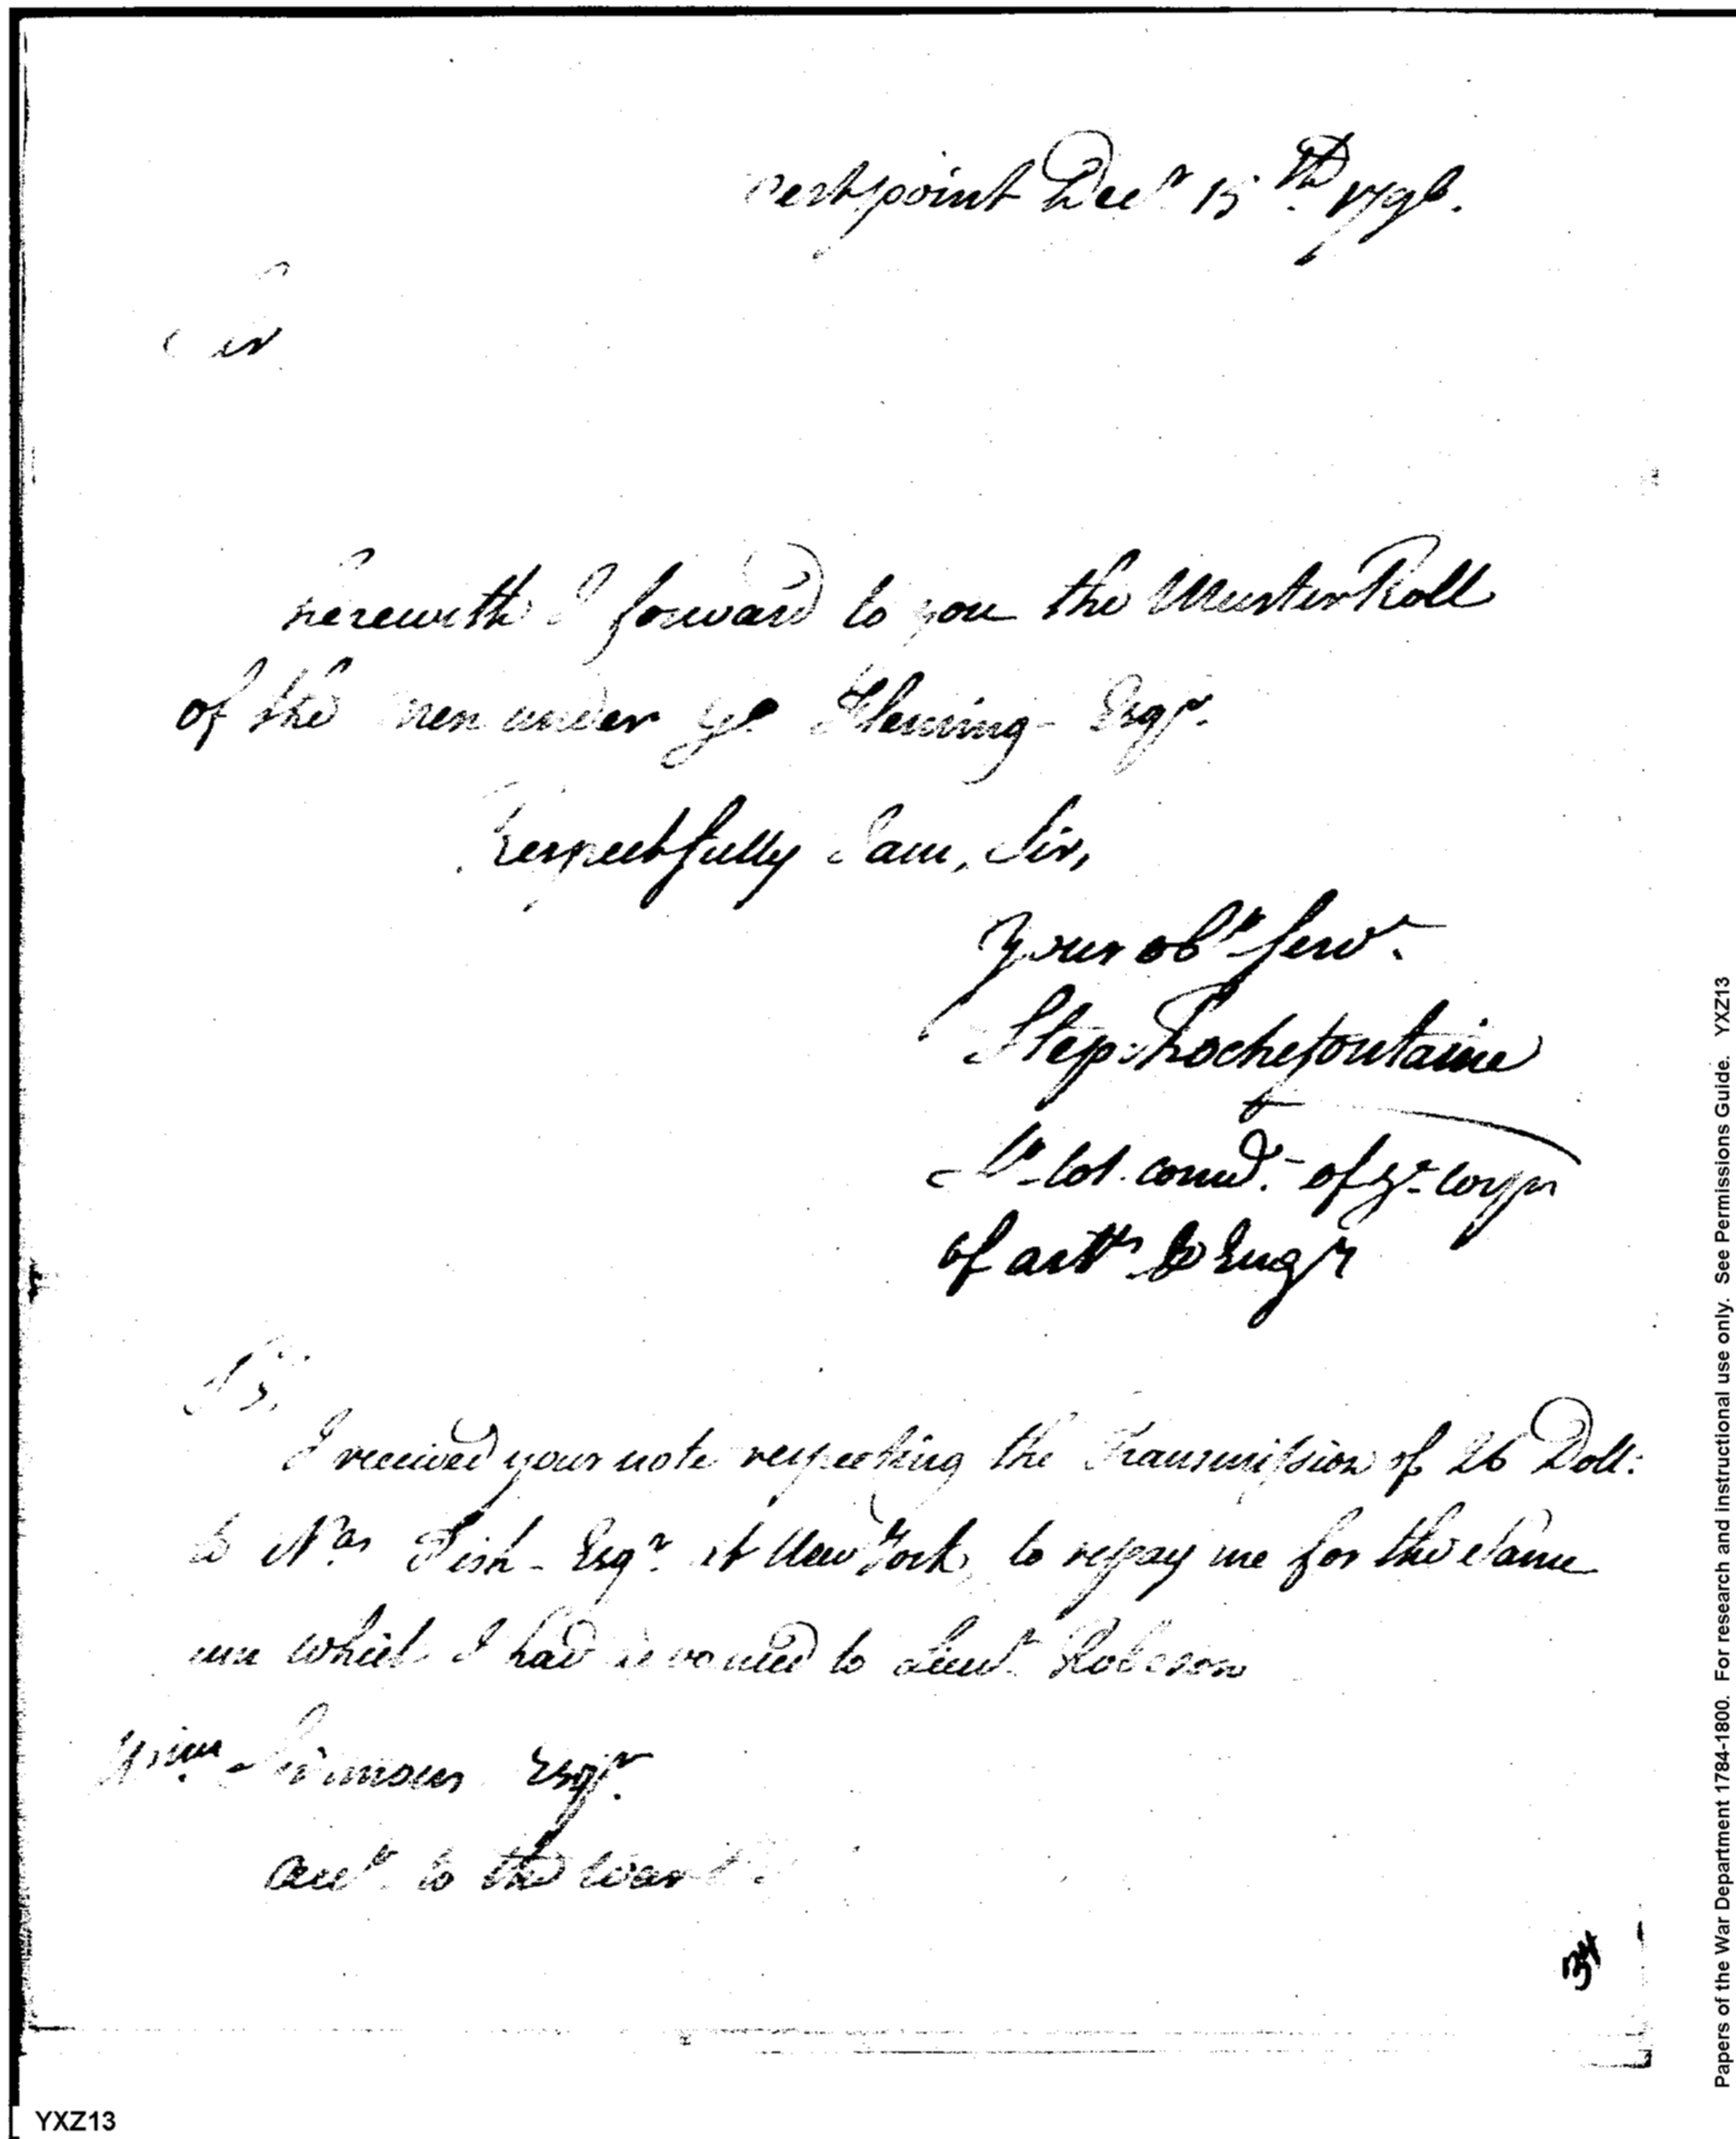 Westpoint Decr 15th 1796.
Sir
herewith I forward to you the Muster Roll
of the men under ge Fleming - Esqr.
Respectfully I am, Sir,
Your obt Servt.
Step: Rochefontaine
Lt Col. comdt. of ye corps
of artts & Engrs
P.S.
I received your note respecting the Transmission of 26 Doll:
to Nas Fish - Esqr. at New York, to repay me for the same
sum which I had advanced to Lieut. Robeson
Wm Simmons Esqr.
Acct. to the War
34
YXZ13
Papers of the War Department 1784-1800. For research and instructional use only. See Permissions Guide. YXZ13